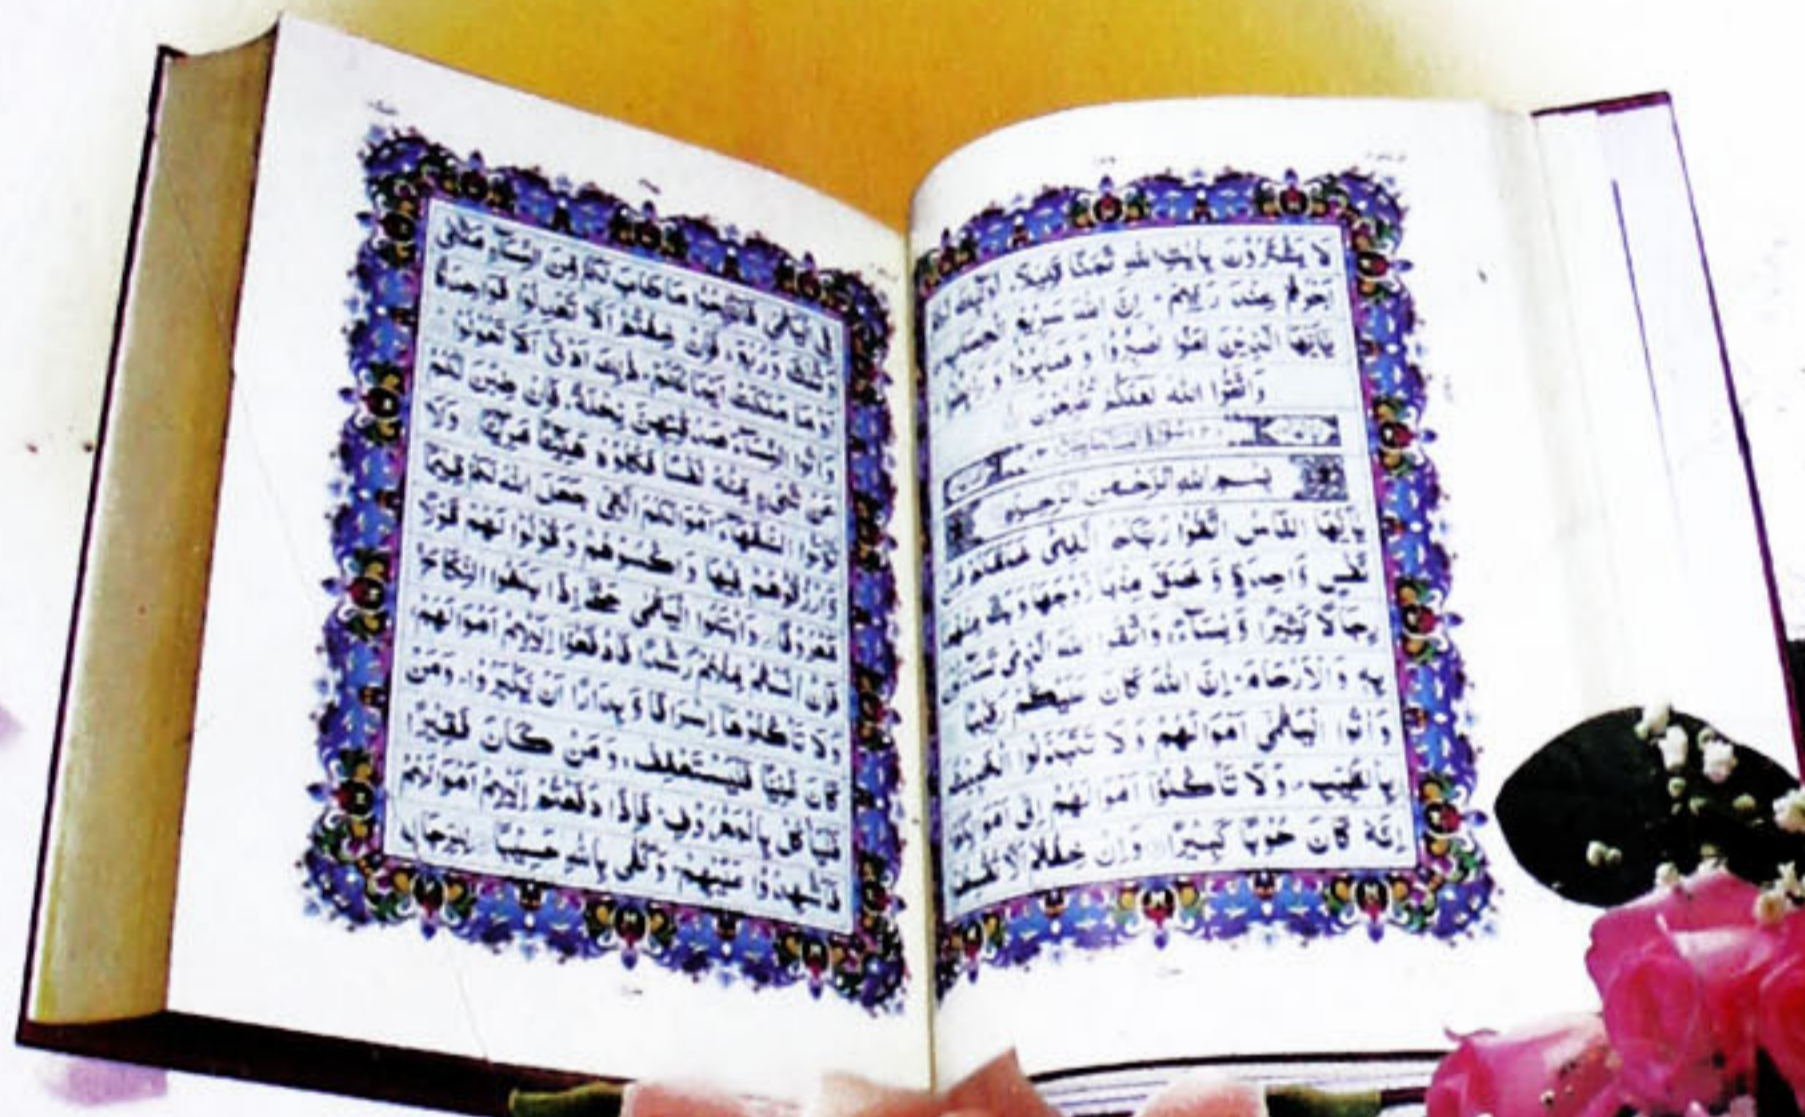 لَا يَشْتَرُوْنَ بِاٰيٰتِ اللّٰهِ ثَمَنًا قَلِيْلًا اُولٰٓئِكَ لَهُمْ
اَجْرُهُمْ عِنْدَ رَبِّهِمْ اِنَّ اللّٰهَ سَرِيْعُ الْحِسَابِ
يٰٓاَيُّهَا الَّذِيْنَ اٰمَنُوا اصْبِرُوْا وَ صَابِرُوْا وَ رَابِطُوْا
وَاتَّقُوا اللّٰهَ لَعَلَّكُمْ تُفْلِحُوْنَ
بِسْمِ اللّٰهِ الرَّحْمٰنِ الرَّحِيْمِ
يٰٓاَيُّهَا النَّاسُ اتَّقُوْا رَبَّكُمُ الَّذِيْ خَلَقَكُمْ مِّنْ
نَّفْسٍ وَّاحِدَةٍ وَّ خَلَقَ مِنْهَا زَوْجَهَا وَ بَثَّ مِنْهُمَا
رِجَالًا كَثِيْرًا وَّ نِسَآءً وَاتَّقُوا اللّٰهَ الَّذِيْ تَسَآءَلُوْنَ
بِهٖ وَالْاَرْحَامَ اِنَّ اللّٰهَ كَانَ عَلَيْكُمْ رَقِيْبًا
وَ اٰتُوا الْيَتٰمٰٓى اَمْوَالَهُمْ وَ لَا تَتَبَدَّلُوا الْخَبِيْثَ
بِالطَّيِّبِ وَ لَا تَاْكُلُوْٓا اَمْوَالَهُمْ اِلٰٓى اَمْوَالِكُمْ
اِنَّهٗ كَانَ حُوْبًا كَبِيْرًا وَ اِنْ خِفْتُمْ اَلَّا تُقْسِطُوْا
فِي الْيَتٰمٰى فَانْكِحُوْا مَا طَابَ لَكُمْ مِّنَ النِّسَآءِ مَثْنٰى
وَ ثُلٰثَ وَ رُبٰعَ فَاِنْ خِفْتُمْ اَلَّا تَعْدِلُوْا فَوَاحِدَةً
اَوْ مَا مَلَكَتْ اَيْمَانُكُمْ ذٰلِكَ اَدْنٰٓى اَلَّا تَعُوْلُوْا
وَ اٰتُوا النِّسَآءَ صَدُقٰتِهِنَّ نِحْلَةً فَاِنْ طِبْنَ لَكُمْ
عَنْ شَيْءٍ مِّنْهُ نَفْسًا فَكُلُوْهُ هَنِيْٓئًا مَّرِيْٓئًا وَ لَا
تُؤْتُوا السُّفَهَآءَ اَمْوَالَكُمُ الَّتِيْ جَعَلَ اللّٰهُ لَكُمْ قِيٰمًا
وَّ ارْزُقُوْهُمْ فِيْهَا وَ اكْسُوْهُمْ وَ قُوْلُوْا لَهُمْ قَوْلًا
مَّعْرُوْفًا وَ ابْتَلُوا الْيَتٰمٰى حَتّٰٓى اِذَا بَلَغُوا النِّكَاحَ
فَاِنْ اٰنَسْتُمْ مِّنْهُمْ رُشْدًا فَادْفَعُوْٓا اِلَيْهِمْ اَمْوَالَهُمْ
وَ لَا تَاْكُلُوْهَآ اِسْرَافًا وَّ بِدَارًا اَنْ يَّكْبَرُوْا وَ مَنْ
كَانَ غَنِيًّا فَلْيَسْتَعْفِفْ وَ مَنْ كَانَ فَقِيْرًا
فَلْيَاْكُلْ بِالْمَعْرُوْفِ فَاِذَا دَفَعْتُمْ اِلَيْهِمْ اَمْوَالَهُمْ
فَاَشْهِدُوْا عَلَيْهِمْ وَ كَفٰى بِاللّٰهِ حَسِيْبًا لِلرِّجَالِ